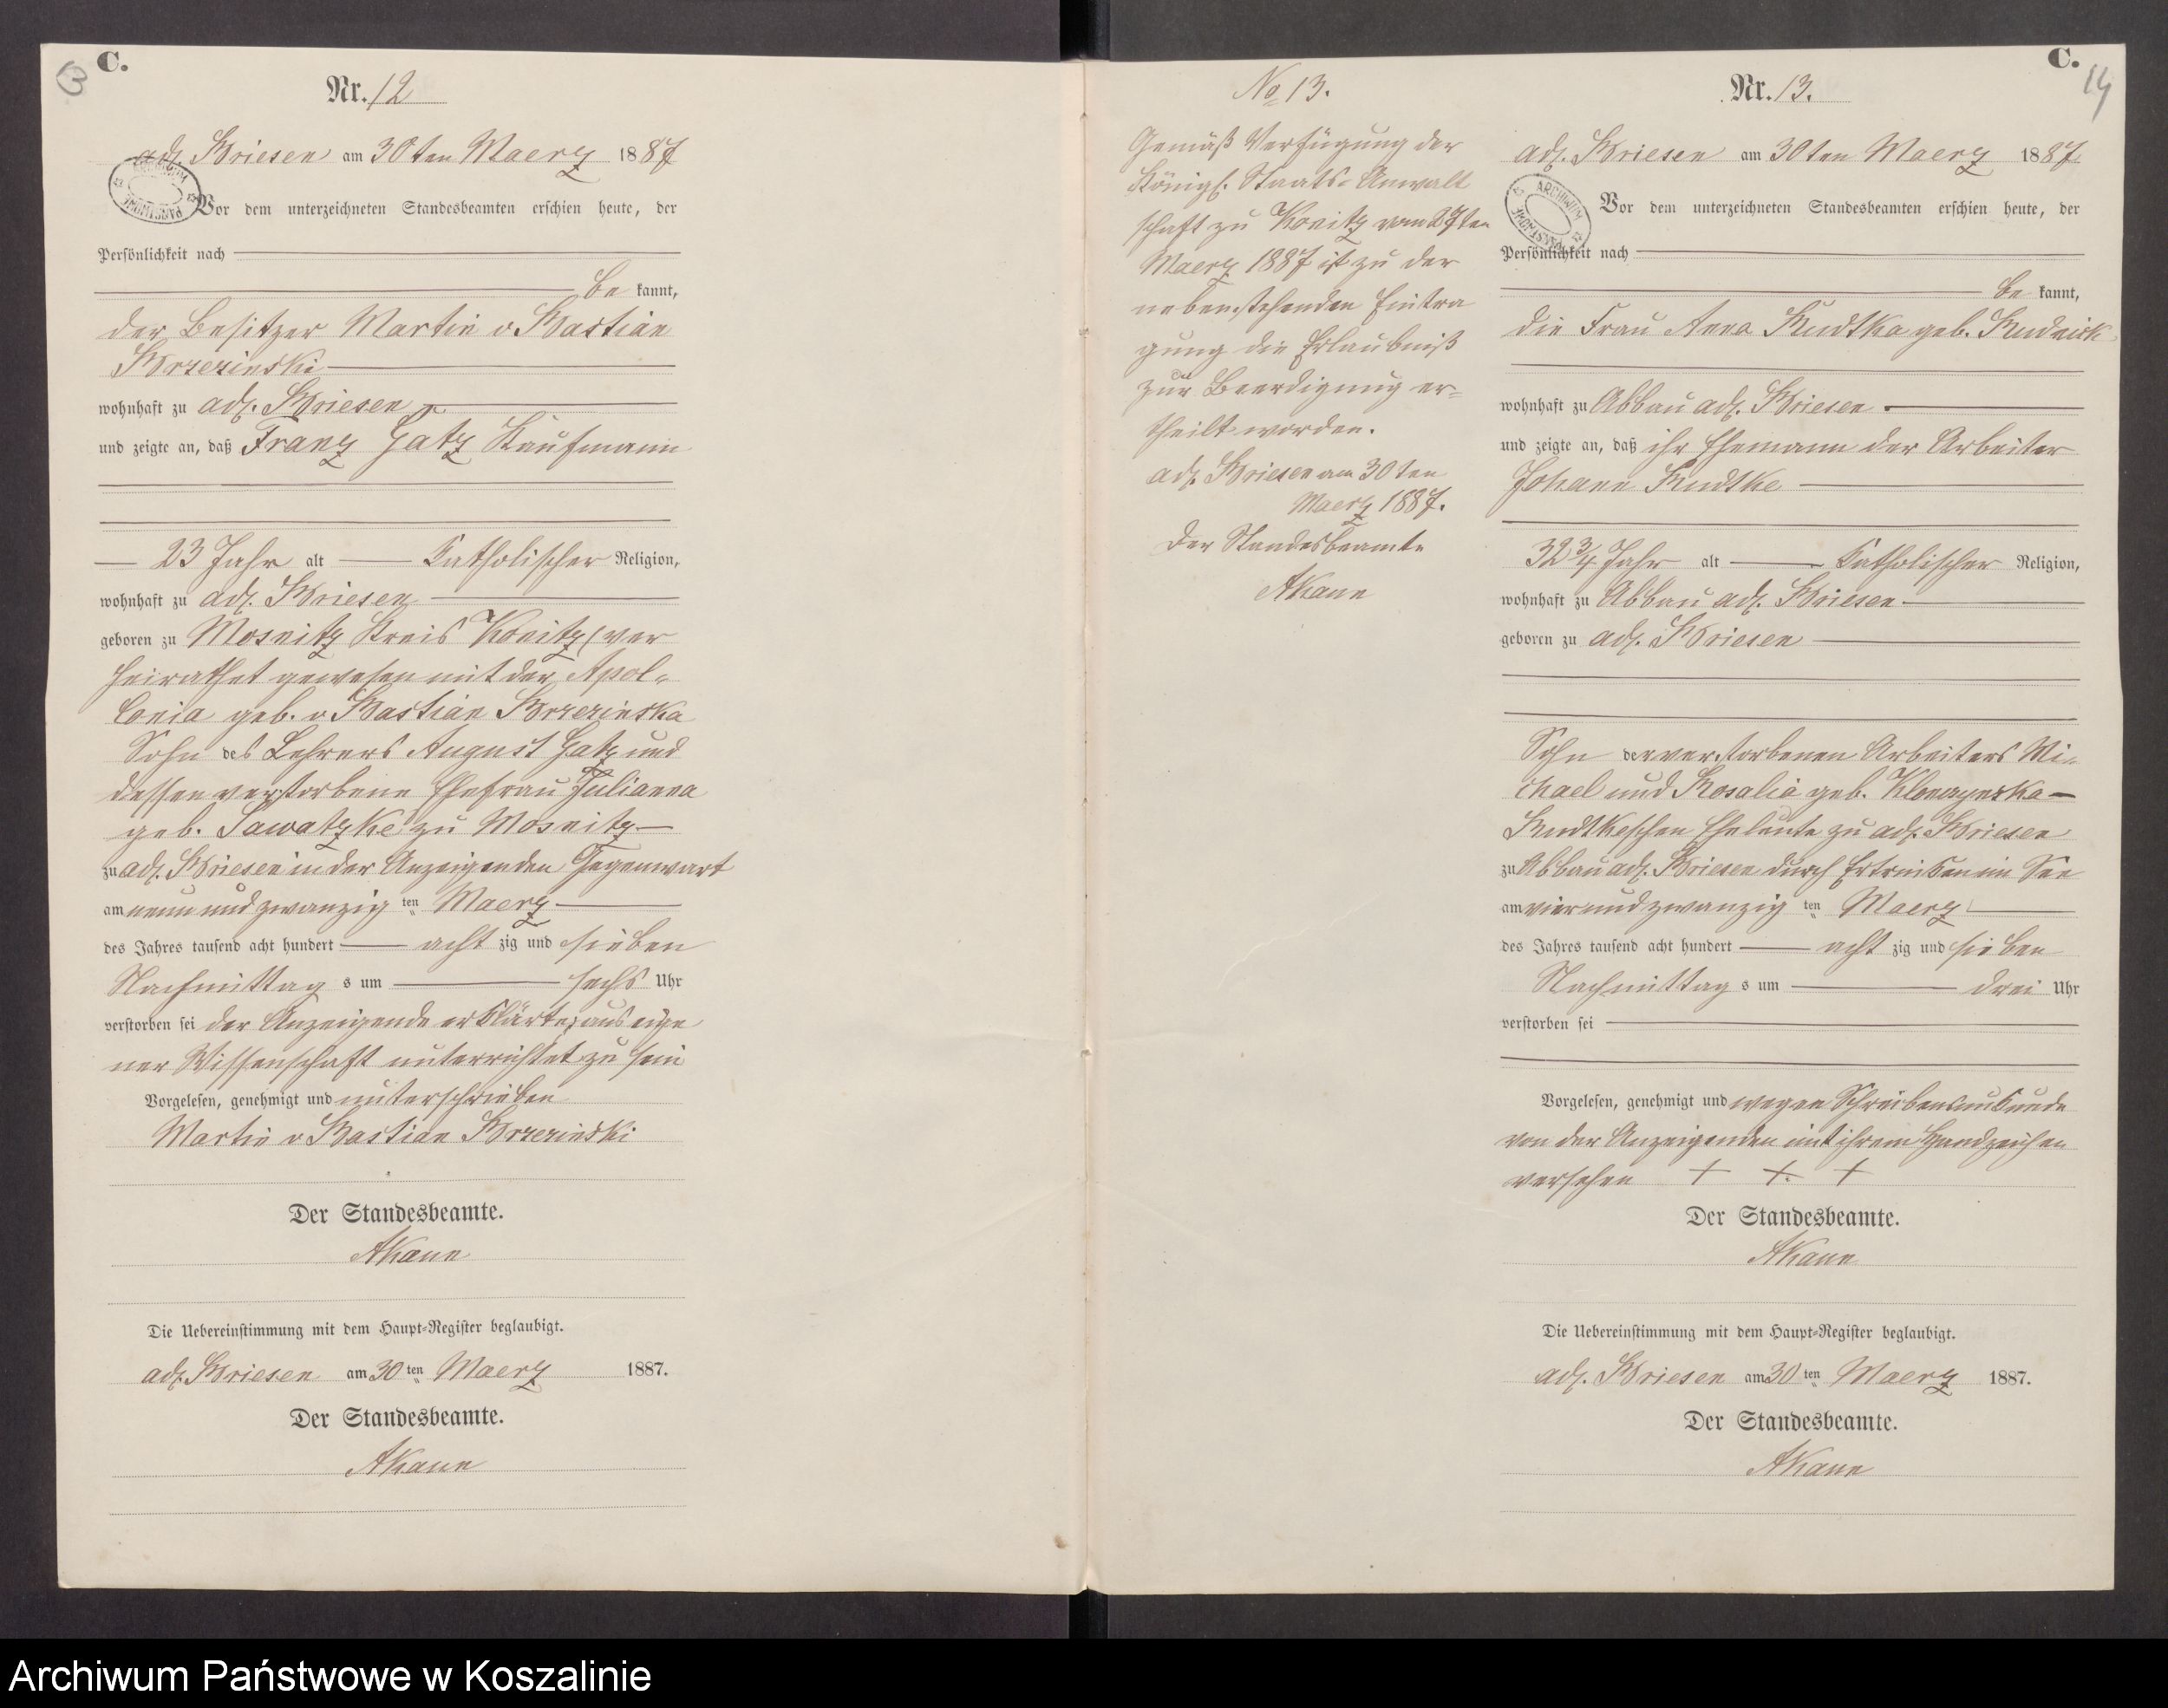 C.
13
Nr. 12
adl. Briesen am 30ten Maerz 1887
Vor dem unterzeichneten Standesbeamten erschien heute, der
Persönlichkeit nach
be kannt,
der Besitzer Martin v Bastian
Brzezinski
wohnhaft zu adl. Briesen
und zeigte an, daß Franz Gatz Kaufmann
23 Jahr alt Katholischer Religion,
wohnhaft zu adl. Briesen
geboren zu Mosnitz Kreis Konitz (ver
heirathet gewesen mit der Apol-
lonia geb. v Bastian Brzezinska
Sohn des Lehrers August Gatz und
dessen verstorbene Ehefrau Julianna
geb. Sawatzke zu Mosnitz
zu adl. Briesen in der Anzeigenden Gegenwart
am neun und zwanzig ten Maerz
des Jahres tausend acht hundert acht zig und sieben
Nachmittag s um sechs Uhr
verstorben sei der Anzeigende erklärte, aus eige
ner Wissenschaft unterrichtet zu sein
Vorgelesen, genehmigt und unterschrieben
Martin v Bastian Brzezinski
Der Standesbeamte.
AKann
Die Uebereinstimmung mit dem Haupt-Register beglaubigt.
adl. Briesen am 30 ten Maerz 1887.
Der Standesbeamte.
AKann
No 13.
Gemäß Verfügung der
Königl. Staats-Anwalt
schaft zu Konitz vom 27ten
Maerz 1887 ist zu der
nebenstehenden Eintra
gung die Erlaubniß
zur Beerdigung er-
theilt worden.
adl. Briesen am 30ten
Maerz 1887.
Der Standesbeamte
AKann
C.
14
Nr. 13.
adl. Briesen am 30ten Maerz 1887
ARCHIWUM
Vor dem unterzeichneten Standesbeamten erschien heute, der
Persönlichkeit nach
be kannt,
die Frau Anna Rudtka geb. Rudnick
wohnhaft zu Abbau adl. Briesen
und zeigte an, daß ihr Ehemann der Arbeiter
Johann Rudtke
32 3/4 Jahr alt Katholischer Religion,
wohnhaft zu Abbau adl. Briesen
geboren zu adl. Briesen
Sohn der verstorbenen Arbeiters Mi-
chael und Rosalia geb.
Rudtkeschen Eheleute zu adl. Briesen
zu Abbau adl. Briesen durch Ertrinken im See
am vier und zwanzig ten Maerz
des Jahres tausend acht hundert acht zig und sieben
Nachmittag s um drei Uhr
verstorben sei
Vorgelesen, genehmigt und wegen Schreibensunkunde
von der Anzeigenden mit ihrem Handzeichen
versehen + + +
Der Standesbeamte.
AKann
Die Uebereinstimmung mit dem Haupt-Register beglaubigt.
adl. Briesen am 30 ten Maerz 1887.
Der Standesbeamte.
AKann
Archiwum Państwowe w Koszalinie